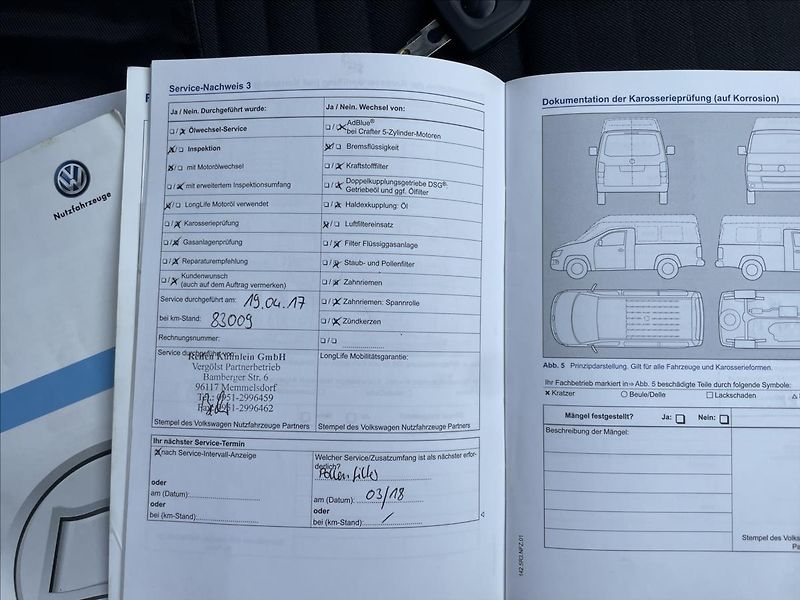 Nutzfahrzeuge
Service-Nachweis 3
Ja / Nein. Durchgeführt wurde:
Ölwechsel-Service
Inspektion
mit Motorölwechsel
mit erweitertem Inspektionsumfang
LongLife Motoröl verwendet
Karosserieprüfung
Gasanlagenprüfung
Reparaturempfehlung
Kundenwunsch
(auch auf dem Auftrag vermerken)
Service durchgeführt am: 19.04.17
bei km-Stand: 83009
Rechnungsnummer:
Service durchgeführt von:
Reifen Kümlein GmbH
Vergölst Partnerbetrieb
Bamberger Str. 6
96117 Memmelsdorf
Tel.: 0951-2996459
Fax: 0951-2996462
Stempel des Volkswagen Nutzfahrzeuge Partners
Ja / Nein. Wechsel von:
AdBlue®
bei Crafter 5-Zylinder-Motoren
Bremsflüssigkeit
Kraftstofffilter
Doppelkupplungsgetriebe DSG®:
Getriebeöl und ggf. Ölfilter
Haldexkupplung: Öl
Luftfiltereinsatz
Filter Flüssiggasanlage
Staub- und Pollenfilter
Zahnriemen
Zahnriemen: Spannrolle
Zündkerzen
LongLife Mobilitätsgarantie:
Stempel des Volkswagen Nutzfahrzeuge Partners
Ihr nächster Service-Termin
nach Service-Intervall-Anzeige
oder
am (Datum):
oder
bei (km-Stand):
Welcher Service/Zusatzumfang ist als nächster erfor-
derlich?
Pollenfilter
am (Datum): 03/18
oder
bei (km-Stand): /
142.5R3.NFZ.01
Dokumentation der Karosserieprüfung (auf Korrosion)
Abb. 5 Prinzipdarstellung. Gilt für alle Fahrzeuge und Karosserieformen.
Ihr Fachbetrieb markiert in ⇒ Abb. 5 beschädigte Teile durch folgende Symbole:
× Kratzer ○ Beule/Delle □ Lackschaden △
Mängel festgestellt? Ja: □ Nein: □
Beschreibung der Mängel:
Stempel des Volks
Pa